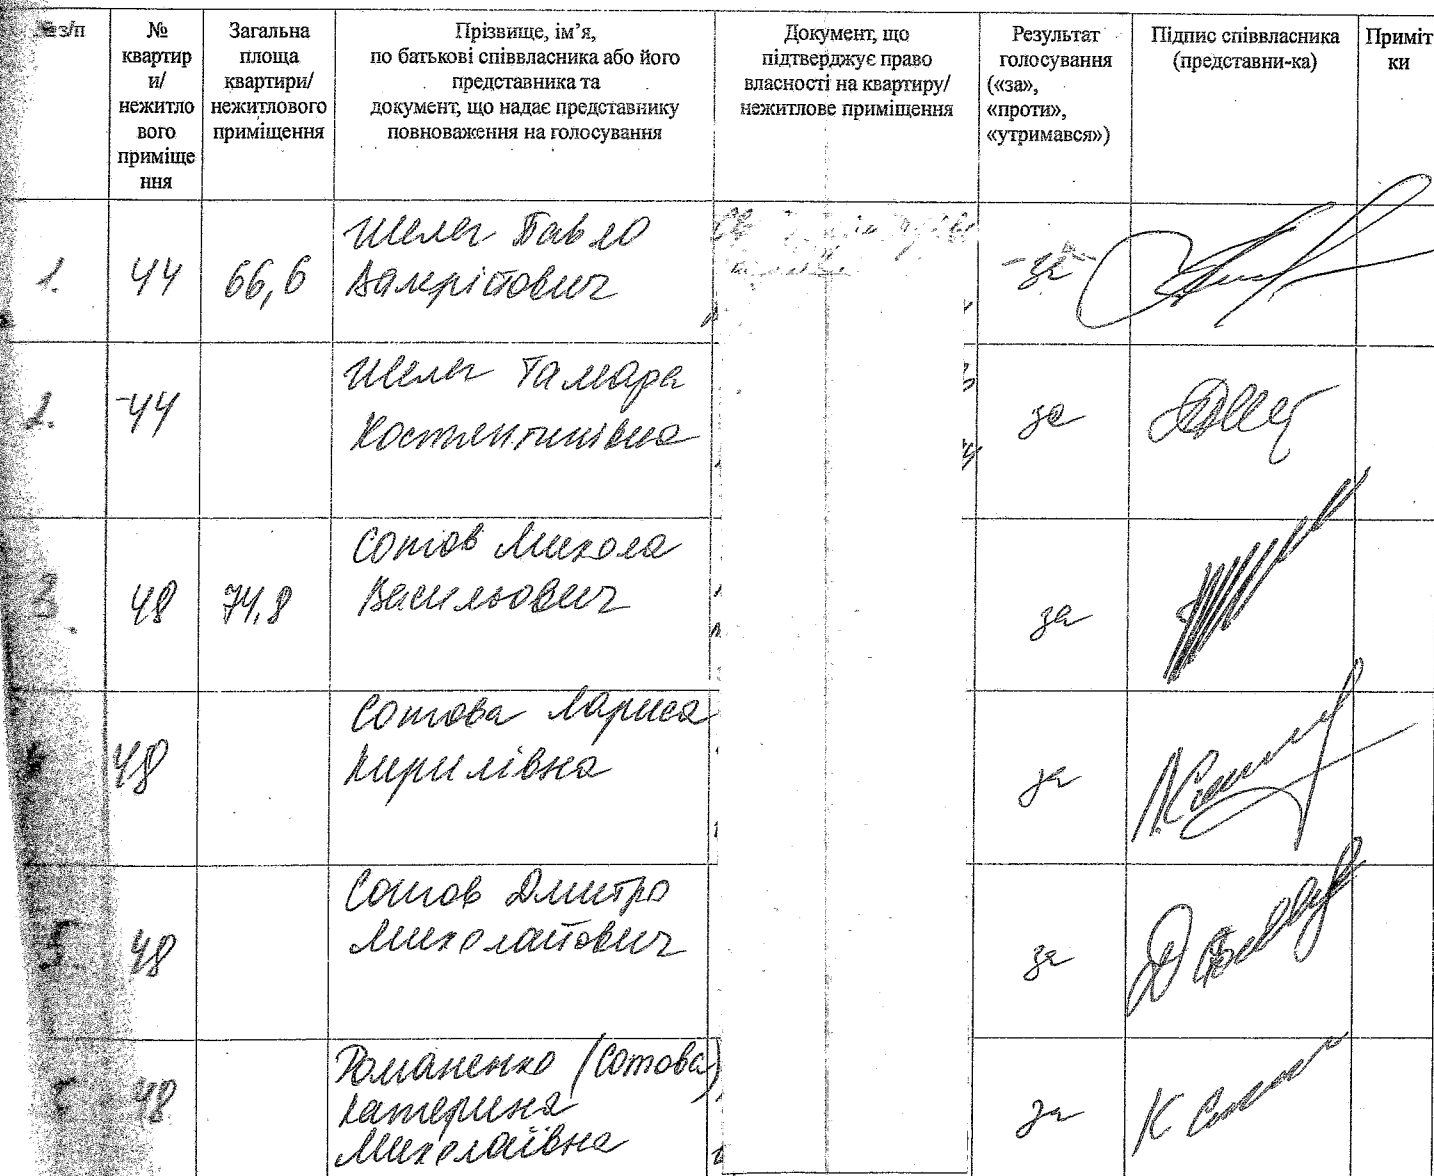 № з/п
№
квартир
и/
нежитло
вого
приміще
ння
Загальна
площа
квартири/
нежитлового
приміщення
Прізвище, ім’я,
по батькові співвласника або його
представника та
документ, що надає представнику
повноваження на голосування
Документ, що
підтверджує право
власності на квартиру/
нежитлове приміщення
Результат
голосування
(«за»,
«проти»,
«утримався»)
Підпис співвласника
(представни-ка)
Приміт
ки
1.
44
66,6
Шелег Павло
Валерійович
за
2.
44
Шелег Тамара
Костянтинівна
за
3.
48
74,8
Сотов Микола
Васильович
за
48
Сотова Лариса
Кирилівна
за
5.
48
Сотов Дмитро
Миколайович
за
48
Романенко (Сотова)
Катерина
Миколаївна
за